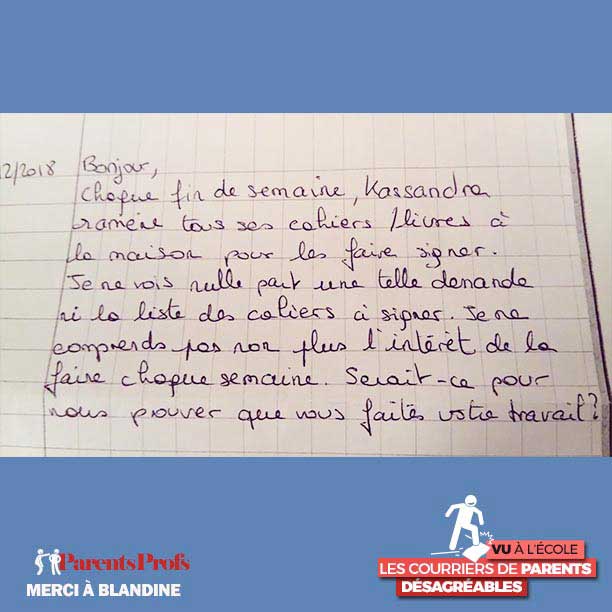 12/2018 Bonjour,
Chaque fin de semaine, Kassandra
ramène tous ses cahiers / livres à
la maison pour les faire signer.
Je ne vois nulle part une telle demande
ni la liste des cahiers à signer. Je ne
comprends pas non plus l'intérêt de la
faire chaque semaine. Serait-ce pour
nous prouver que vous faites votre travail?
ParentsProfs
MERCI À BLANDINE
VU À L'ÉCOLE
LES COURRIERS DE PARENTS
DÉSAGRÉABLES